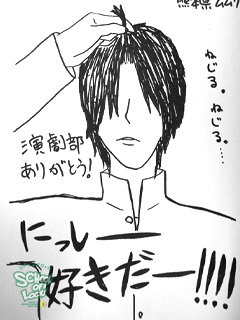 熊本県ムムリ
ねじる。
ねじる。……
演劇部
ありがとう!
にっしー
好きだー!!!!
SCHOOL
OF
LOCK!